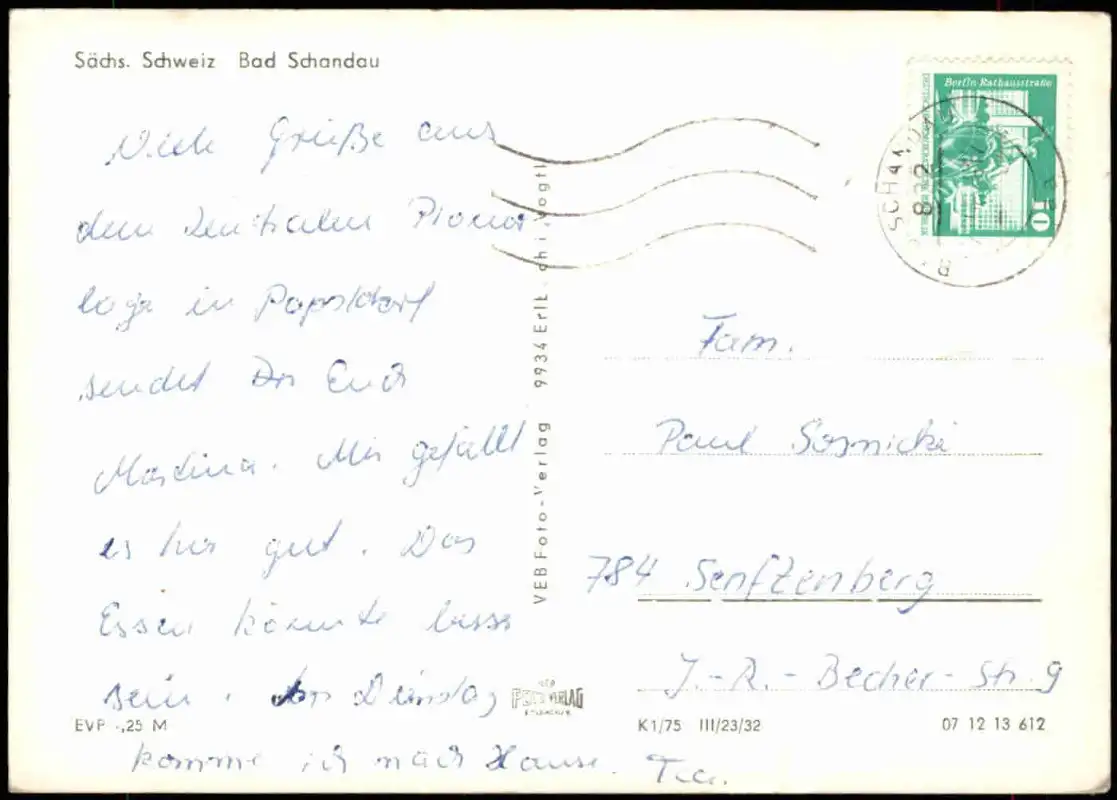 Sächs. Schweiz Bad Schandau
Viele Grüße aus
dem Zentralen Pionier
lager in Papstdorf
sendet Euch
Martina. Mir gefällt
es hier gut. Das
Essen könnte besser
sein. Am Dienstag
komme ich nach Hause.
EVP -,25 M
VEB Foto-Verlag 9934 Erlbach i. Vogtl.
FOTO VERLAG
Berlin Rathausstraße
10
SCHANDAU
Fam.
Paul Sosnicki
784 Senftenberg
J.-R.-Becher-Str. 9
K1/75 III/23/32
07 12 13 612